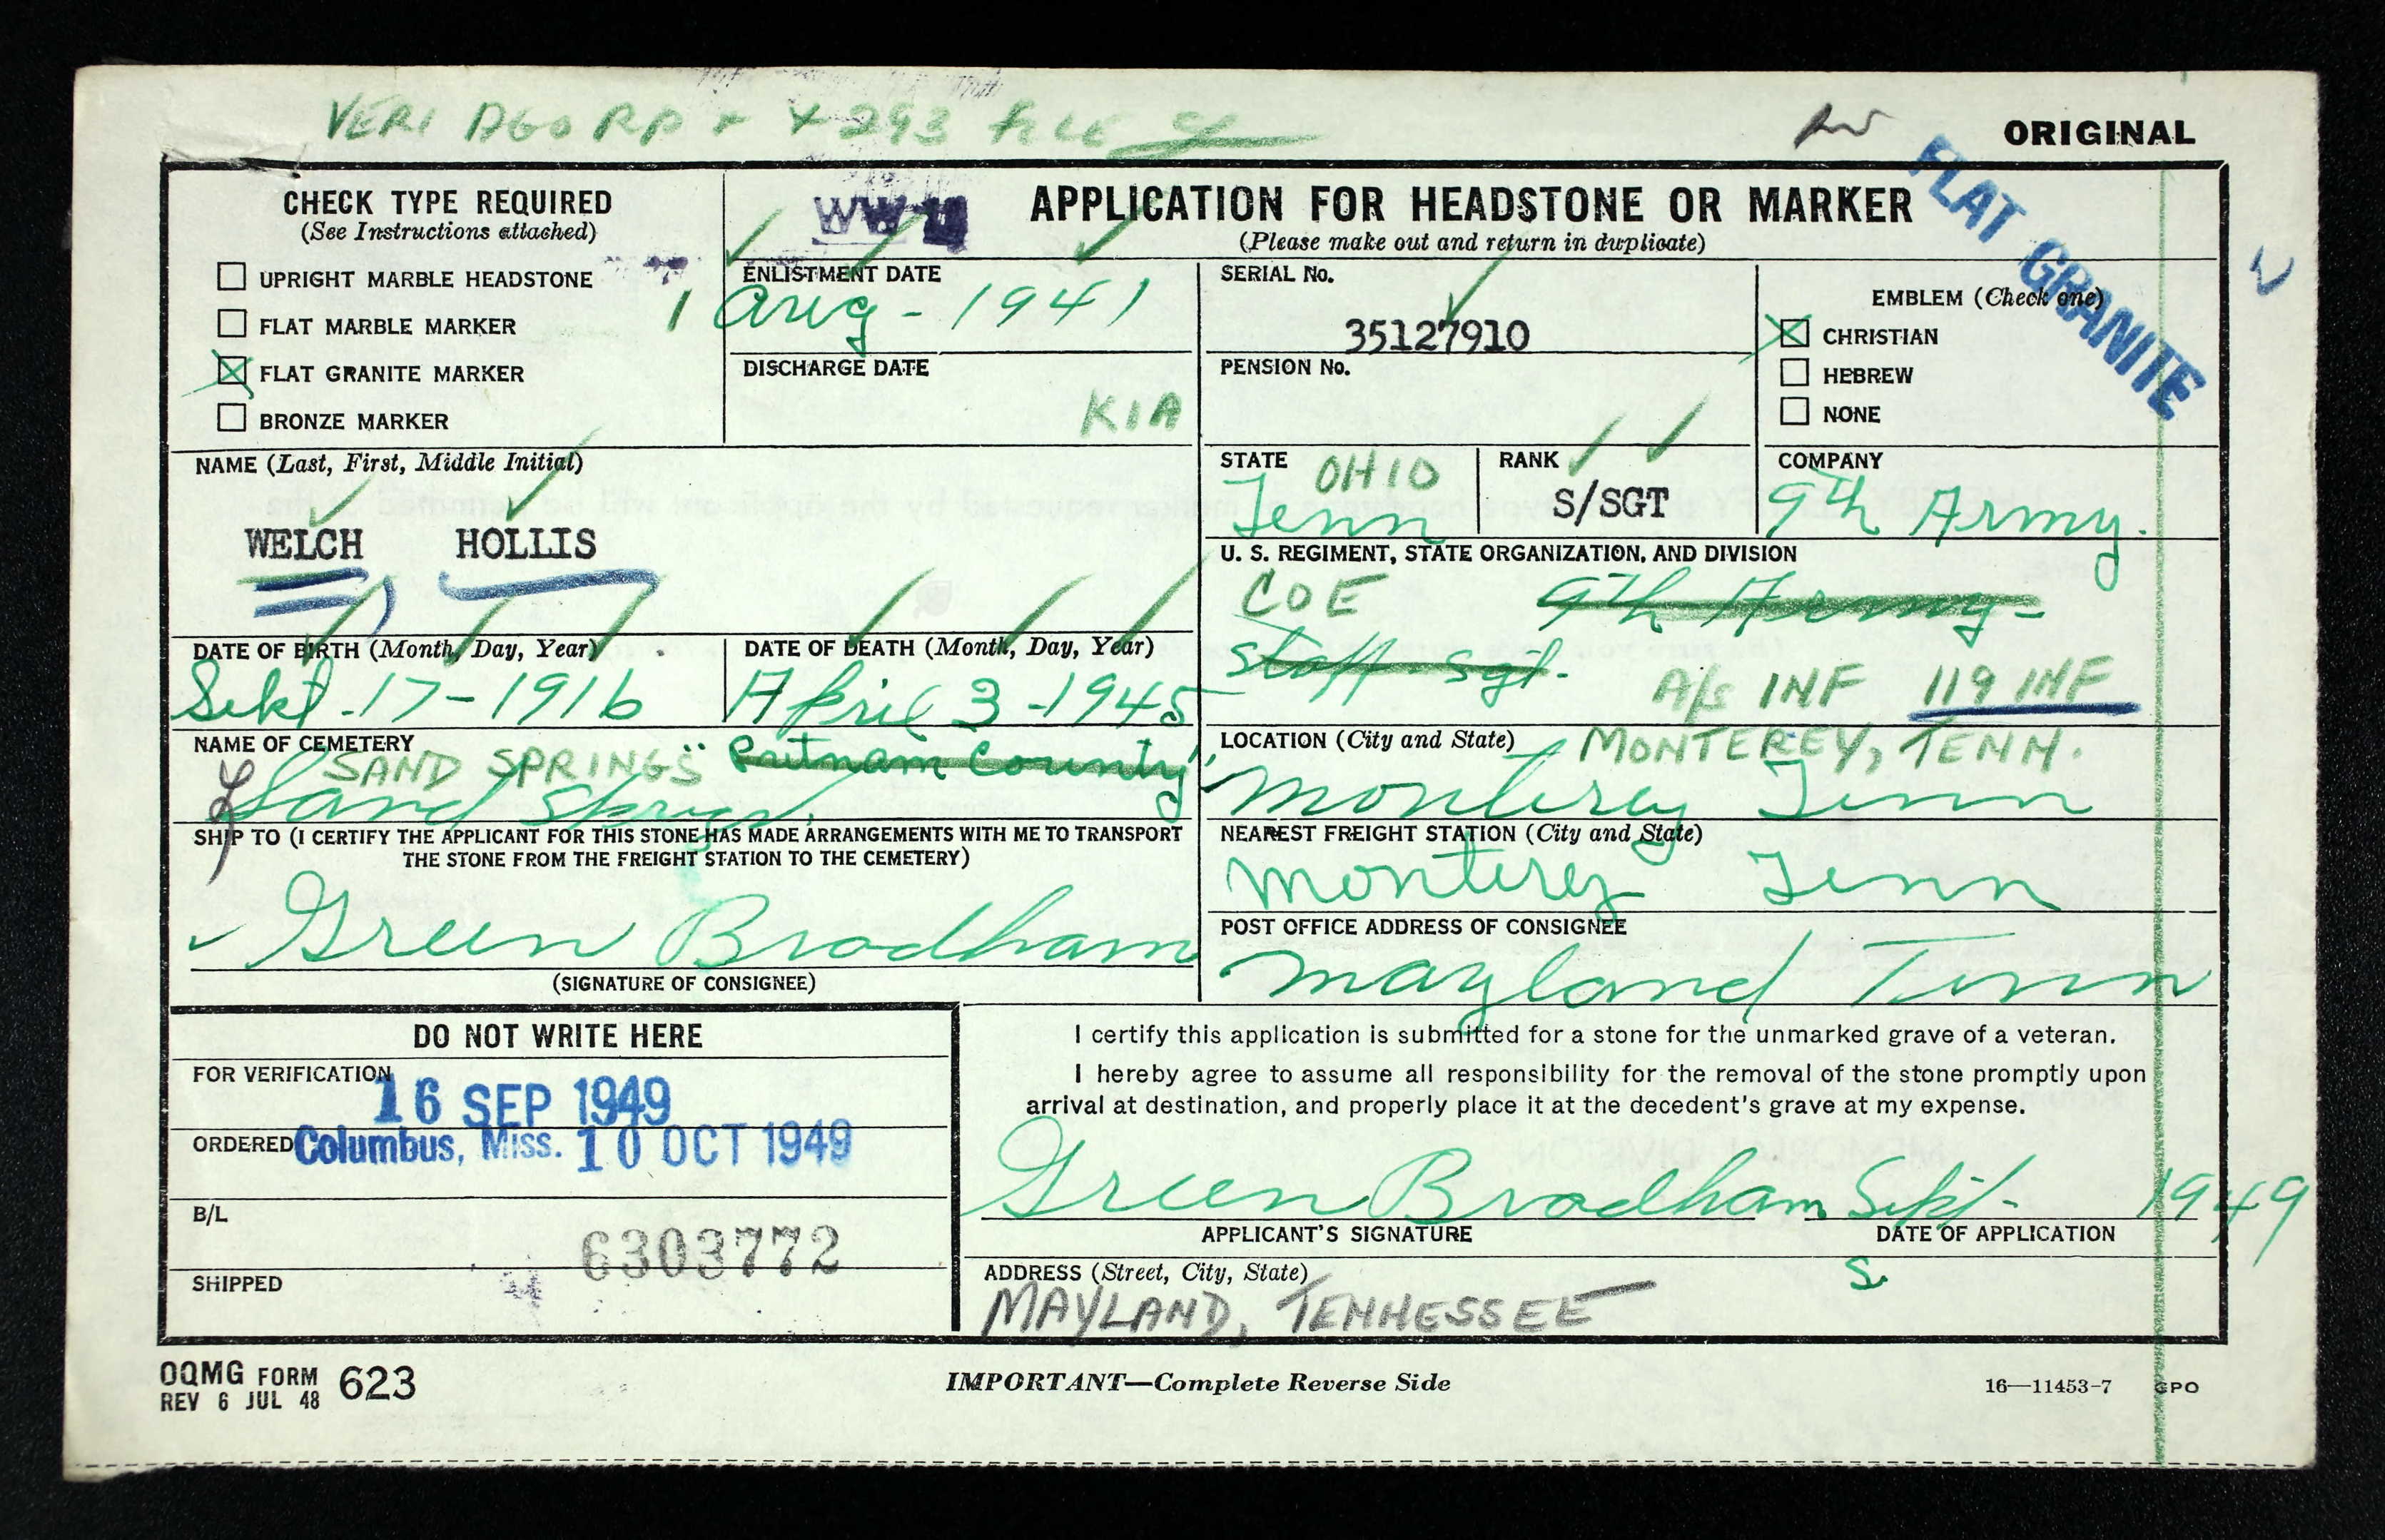 VERI AGO RP + X 293 FILE
ORIGINAL
CHECK TYPE REQUIRED
(See Instructions attached)
UPRIGHT MARBLE HEADSTONE
FLAT MARBLE MARKER
FLAT GRANITE MARKER
BRONZE MARKER
WW II
APPLICATION FOR HEADSTONE OR MARKER
(Please make out and return in duplicate)
FLAT GRANITE
ENLISTMENT DATE
1 Aug - 1941
DISCHARGE DATE
KIA
SERIAL No.
35127910
PENSION No.
EMBLEM (Check one)
CHRISTIAN
HEBREW
NONE
NAME (Last, First, Middle Initial)
WELCH HOLLIS
STATE OHIO
Tenn
RANK
S/SGT
COMPANY
9th Army.
U. S. REGIMENT, STATE ORGANIZATION, AND DIVISION
CO E 9th Army-
Staff Sgt.
A/s INF 119 INF
DATE OF BIRTH (Month, Day, Year)
Sept. 17-1916
DATE OF DEATH (Month, Day, Year)
April 3-1945
NAME OF CEMETERY
SAND SPRINGS Putnam County
Sand Springs
LOCATION (City and State) MONTEREY, TENN.
Monterey Tenn
SHIP TO (I CERTIFY THE APPLICANT FOR THIS STONE HAS MADE ARRANGEMENTS WITH ME TO TRANSPORT
THE STONE FROM THE FREIGHT STATION TO THE CEMETERY)
Green Brodham
(SIGNATURE OF CONSIGNEE)
NEAREST FREIGHT STATION (City and State)
Monterey Tenn
POST OFFICE ADDRESS OF CONSIGNEE
Mayland Tenn
DO NOT WRITE HERE
FOR VERIFICATION
16 SEP 1949
ORDERED Columbus, Miss. 10 OCT 1949
B/L
6303772
SHIPPED
I certify this application is submitted for a stone for the unmarked grave of a veteran.
I hereby agree to assume all responsibility for the removal of the stone promptly upon
arrival at destination, and properly place it at the decedent's grave at my expense.
Green Brodham Sept- 1949
APPLICANT'S SIGNATURE DATE OF APPLICATION
ADDRESS (Street, City, State) S
MAYLAND, TENNESSEE
OQMG FORM 623
REV 6 JUL 48
IMPORTANT—Complete Reverse Side
16—11453-7 GPO